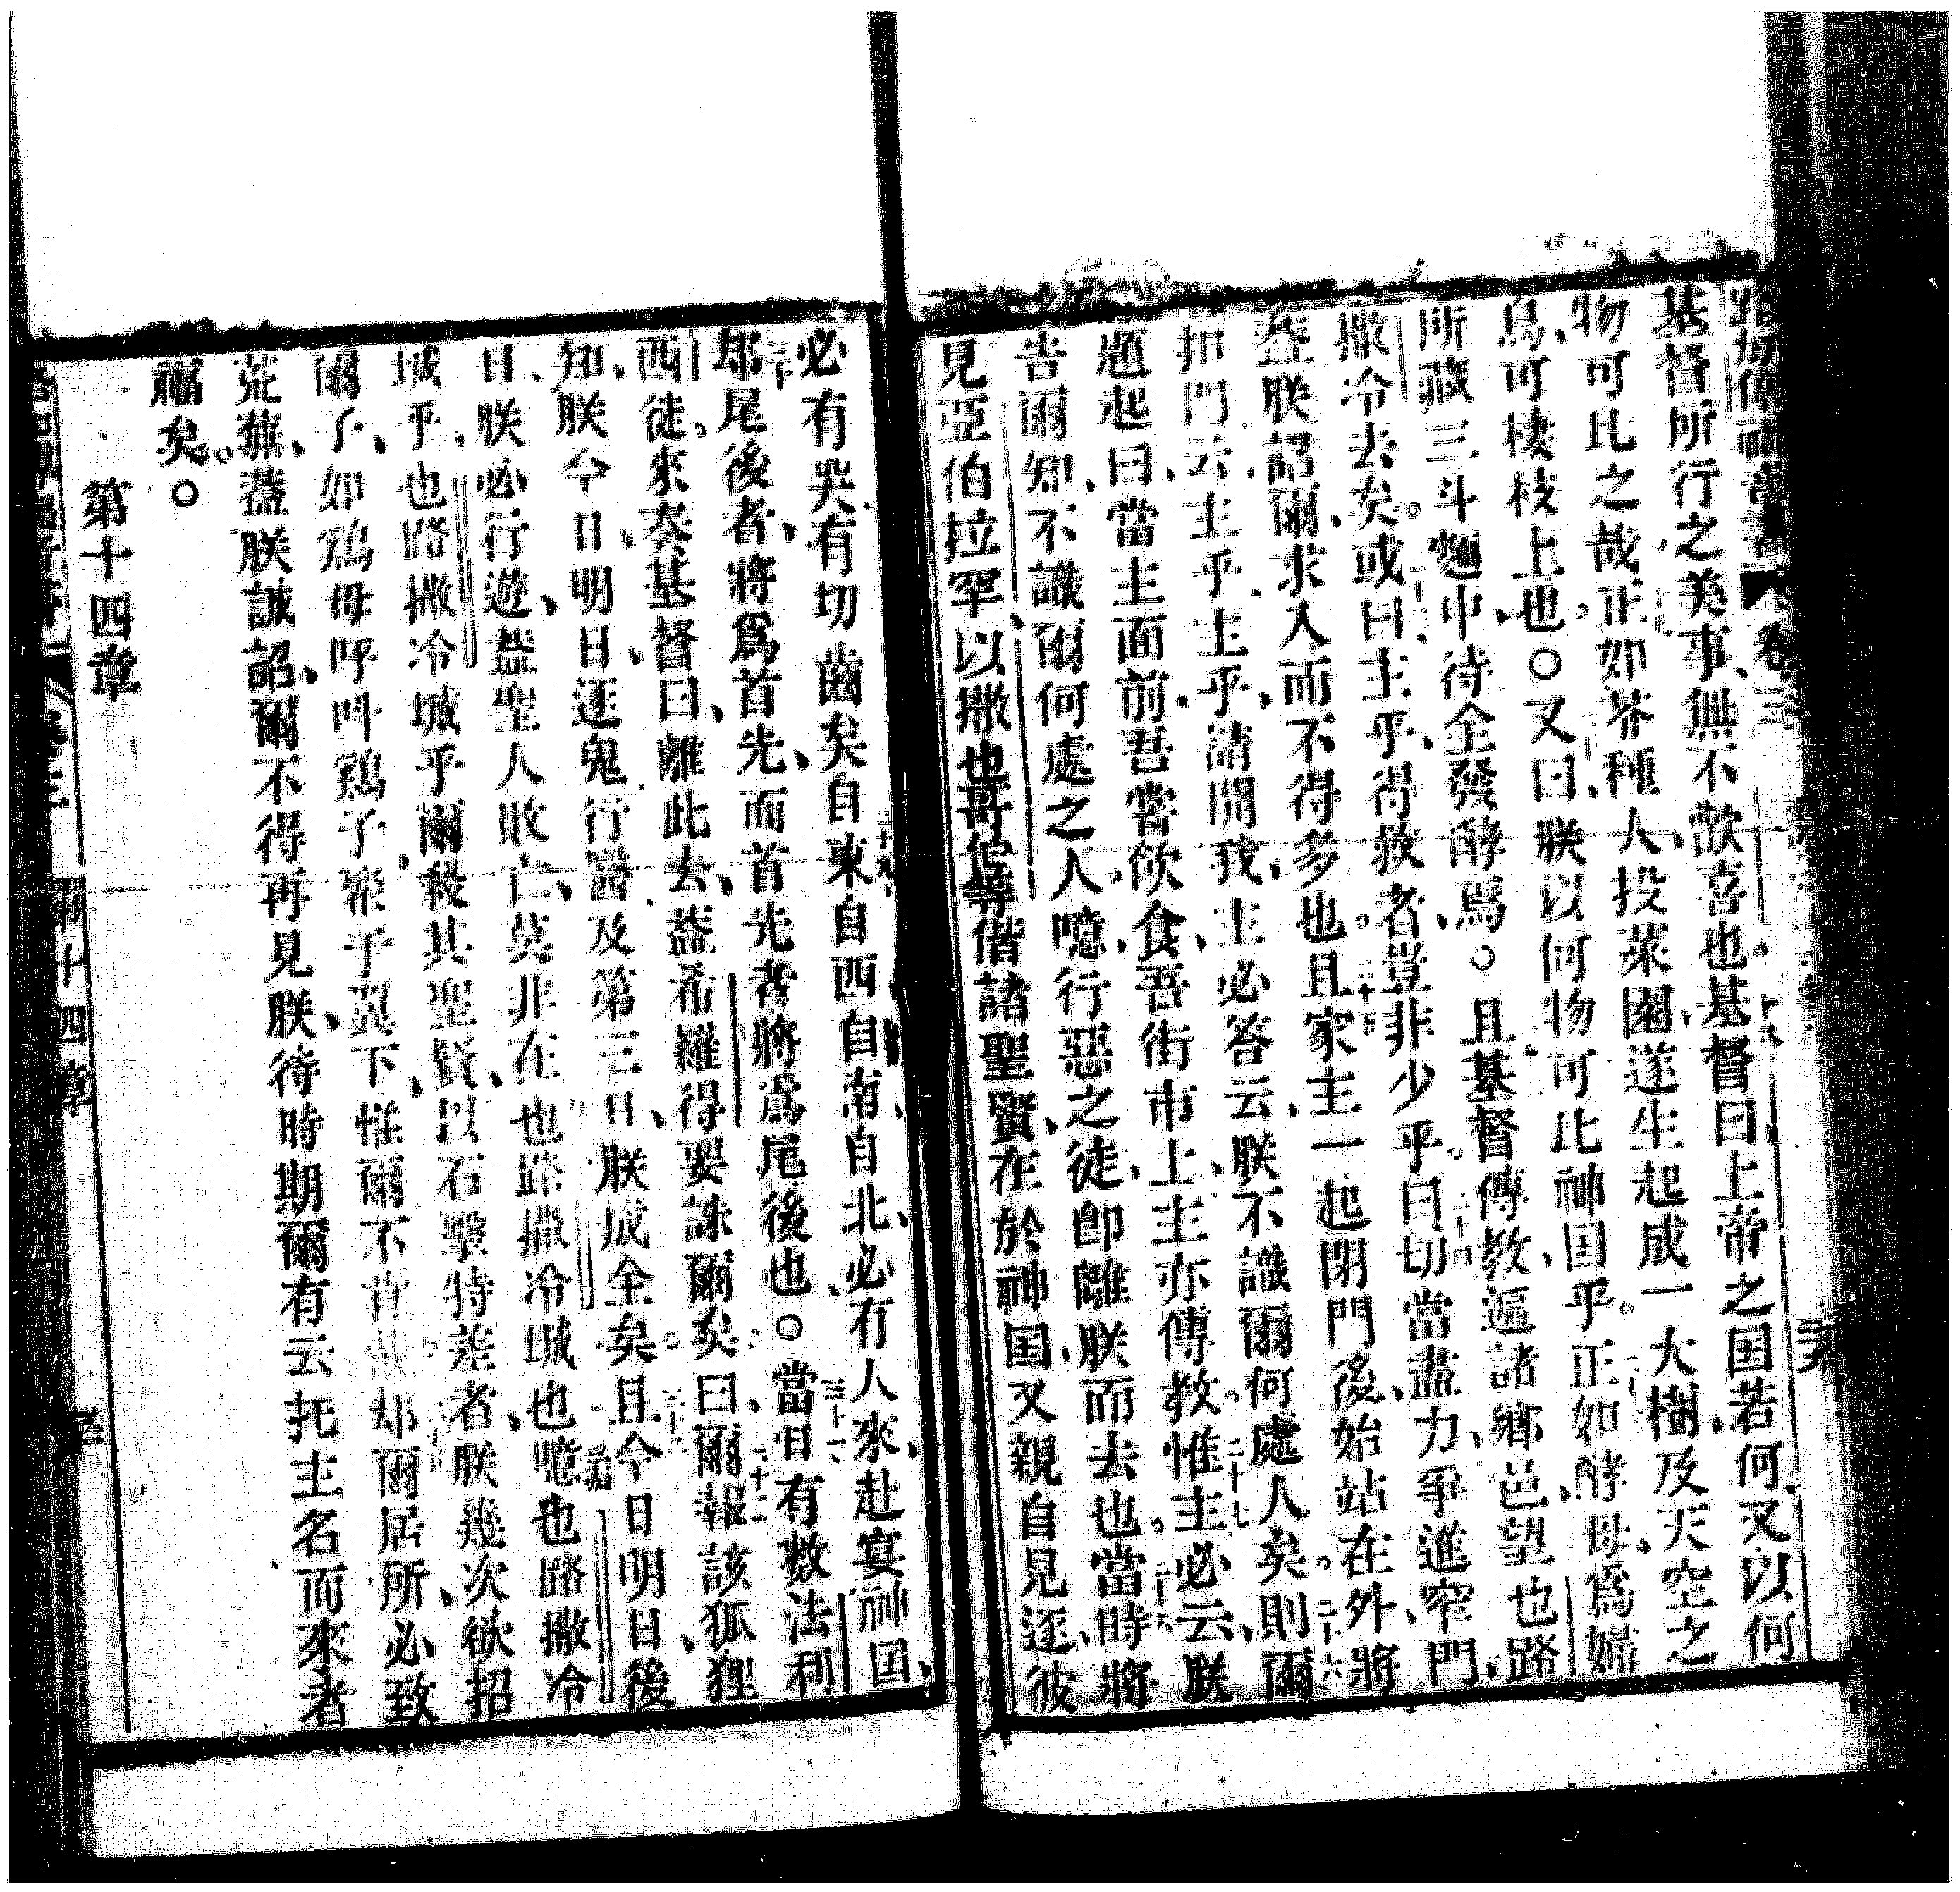 路加傳福音書 卷三
基督所行之美事、無不歡喜也。基督曰上帝之国若何、又以何
物可比之哉、正如芥種、人投菜園、遂生起成一大樹、及天空之
鳥、可棲枝上也。○又曰、朕以何物可比神国乎。正如酵母、爲婦
所藏三斗麵中、待全發酵焉。○且基督傳教、遍諸鄉邑、望也路
撒冷去矣。或曰、主乎、得救者、豈非少乎。曰切當盡力、爭進窄門、
葢朕詔爾、求入而不得多也。且家主一起閉門後、始站在外、將
扣門云、主乎、主乎、請開我、主必答云、朕不識爾何處人矣。則爾
題起曰、當主面前、吾嘗飲食、吾街市上、主亦傳教。惟主必云、朕
告爾知、不識爾何處之人、噫、行惡之徒、即離朕而去也。當時將
見亞伯拉罕、以撒、也哥伯等偕諸聖賢、在於神国、又親自見逐、彼
必有哭有切齒矣。自東自西自南自北、必有人來、赴宴神国、
却尾後者、將爲首先、而首先者、將爲尾後也。○當日有數法利
西徒、來奏基督曰、離此去、葢希羅得要誅爾矣。曰、爾報該狐狸
知、朕今日、明日、逐鬼行醫、及第三日、朕成全矣。且今日明日、後
日、朕必行遊、葢聖人敗亡、莫非在也路撒冷城也。噫也路撒冷
城乎、也路撒冷城乎、爾殺其聖賢、以石擊特差者、朕幾次欲招
爾子、如鷄母呼呌鷄子聚于翼下、惟爾不肯 却爾居所、必致
荒蕪、葢朕誠詔、爾不得再見朕、待時期爾有云、托主名而來者
福矣。○
第十四章
卷三 第十四章